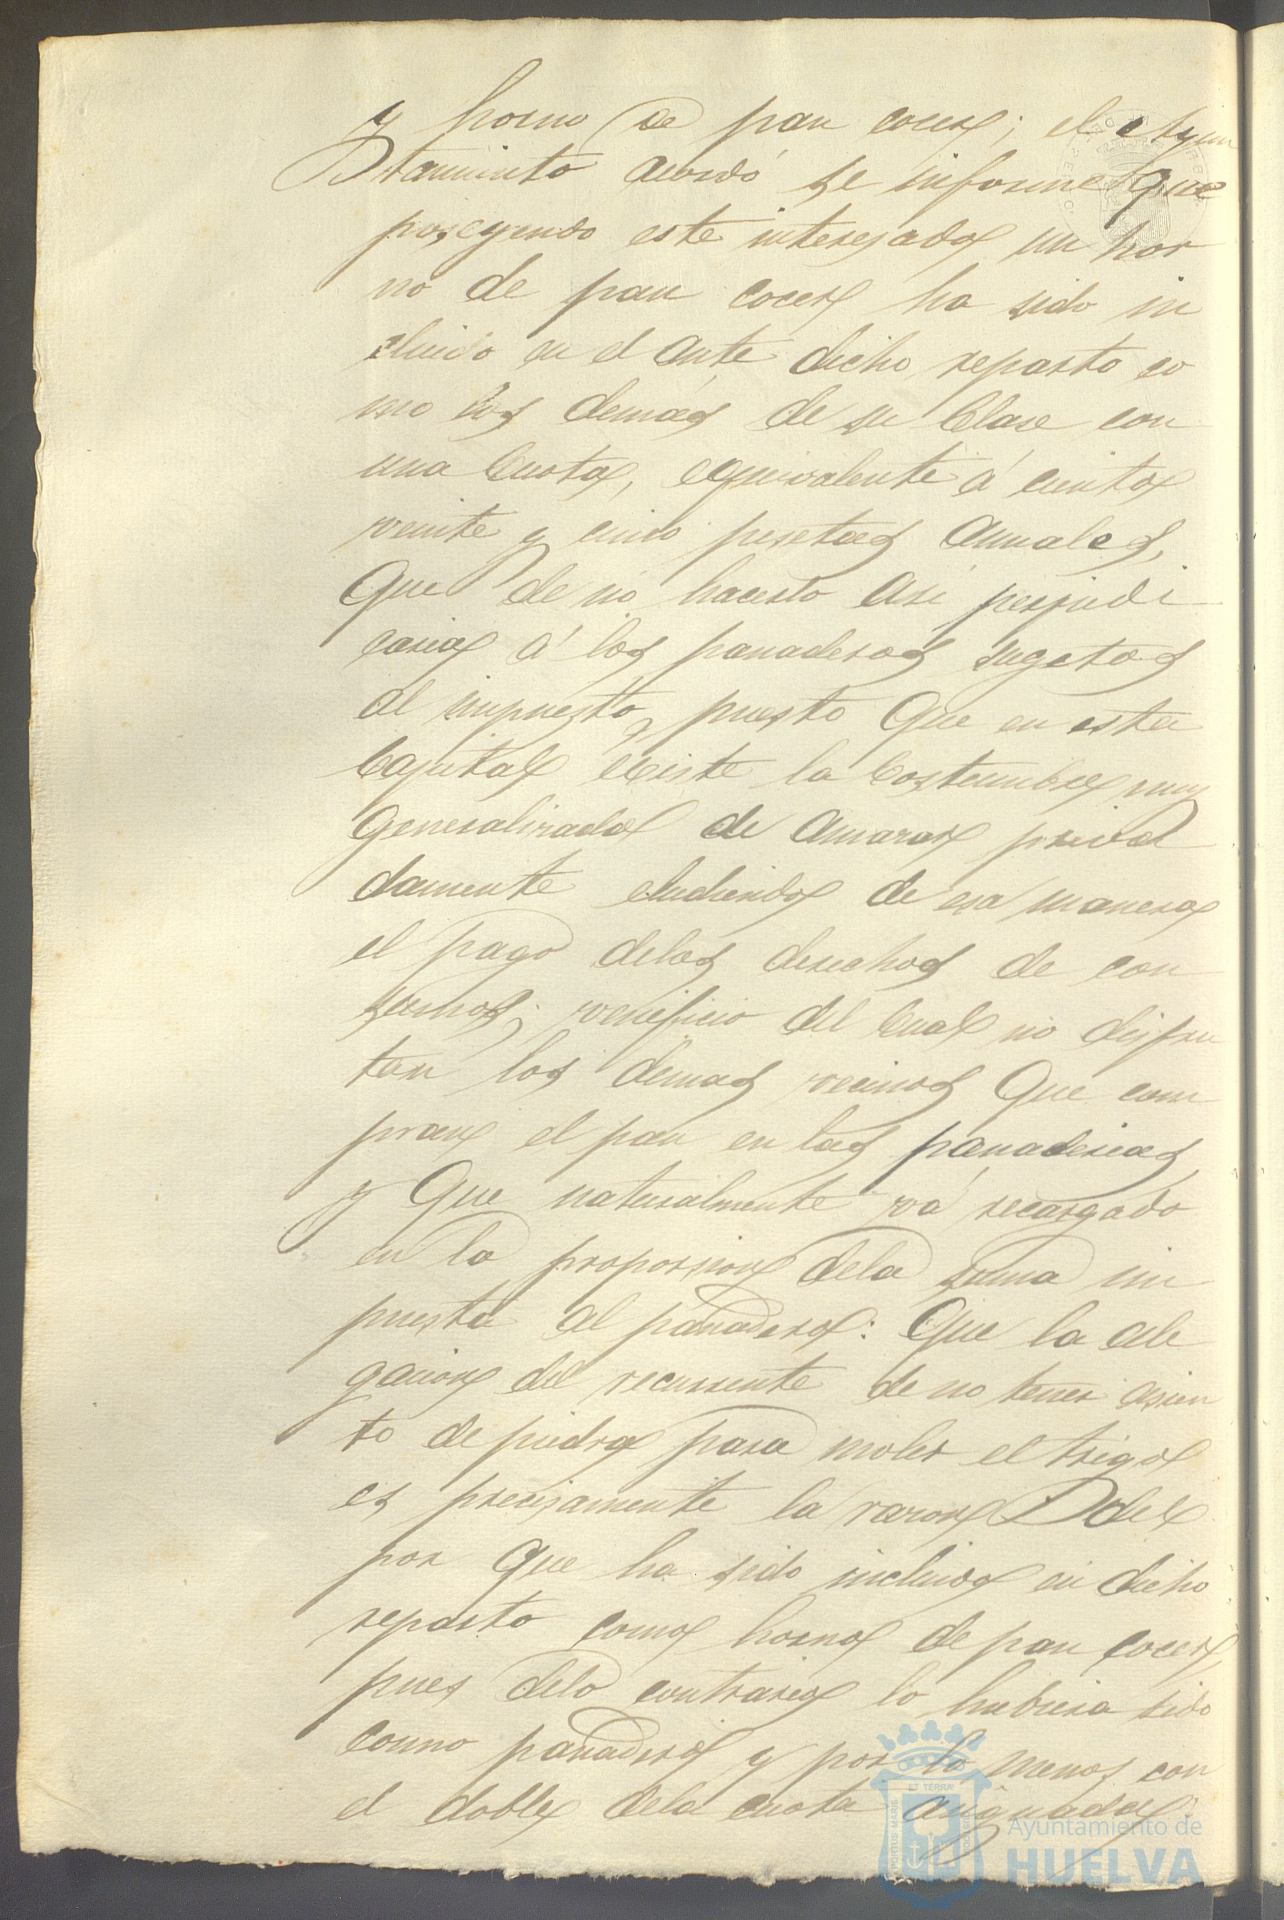 y horno de pan cocer; el Ayun
tamiento acordó se informe que
poseyendo este interesado un hor
no de pan cocer ha sido in
cluido en el ante dicho reparto co
mo los demás de su clase con
una cuota, equivalente á ciento
veinte y cinco pesetas anuales,
Que de no hacerlo asi perjudi
caria á los panaderos sugetos
al impuesto, puesto que en esta
Capital existe la costumbre muy
generalizada de amasar priva
damente eludiendo de esa manera
el pago delos derechos de con
sumos; veneficio del cual no disfru
tan los demas vecinos que com
pran el pan en las panaderias
y que naturalmente vá recargado
en la proporsion dela suma im
puesta al panadero: Que la ale
gacion del recurrente de no tener asien
to de piedra para moler el trigo
es precisamente la razon del
por que ha sido incluido en dicho
reparto como horno de pan cocer,
pues delo contrario lo hubiera sido
como panadero y por lo menos con
el doble dela cuota asignada.
ET TERRAE
PORTUS MARIS
Ayuntamiento de
HUELVA